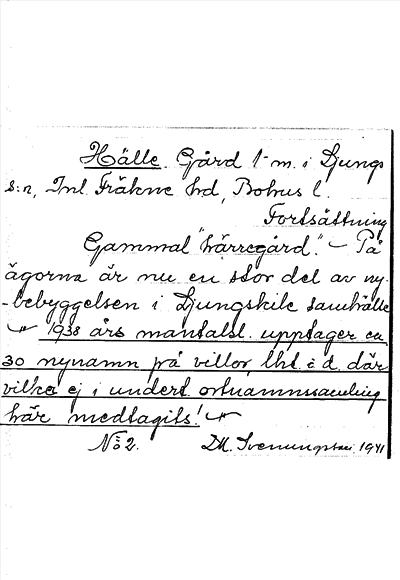 Hälle. Gård 1 m. i Ljungs
s:n, Inl. Fräkne hd, Bohus l.
Fortsättning
Gammal "härregård". — På
ägorna är nu en stor del av ny-
-bebyggelsen i Ljungskile samhälle
1938 års mantalsl. upptager ca
30 nynamn på villor, lht. o d. där
vilka ej i undert. ortnamnssamling
här medtagits!
No 2. D.M. 1941